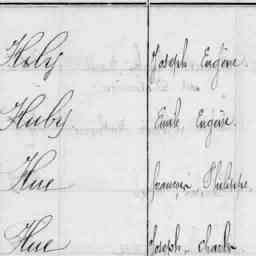 Hély Joseph, Eugène.
Huby Emile, Eugène.
Hue François, Philippe.
Hue Joseph, Charles